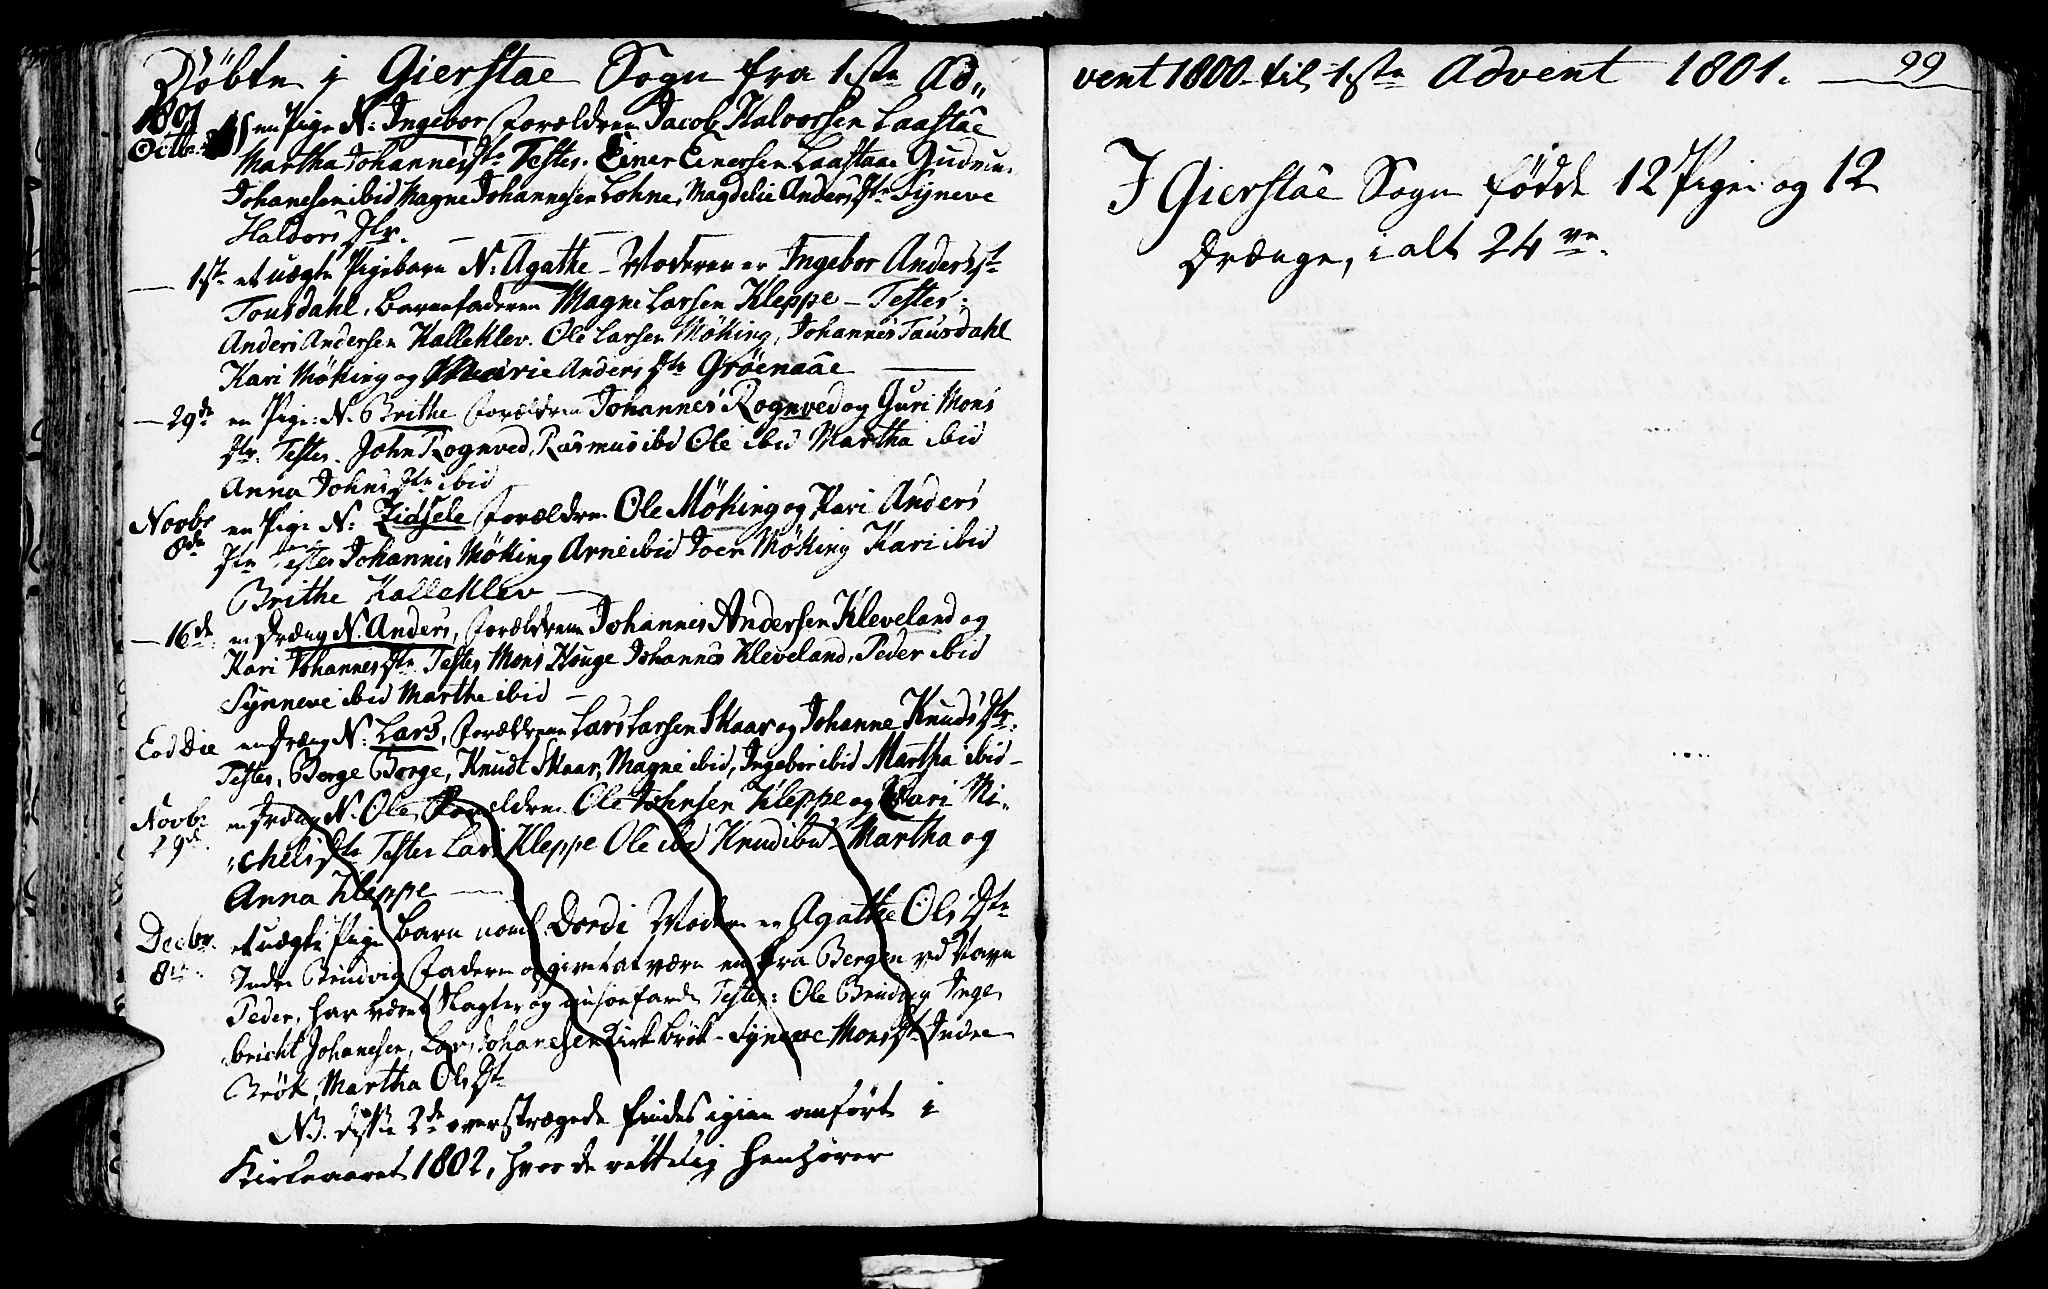 Døbte i Gierstae Sogn fra 1ste Ad„
1801
Octbr. en Pige N: Ingebor Forældrene Jacob Halvorsen Laastae
Martha Johannesdtr Testes. Einer Einersen Laastaae Gudrun
Johanesen ibid Magne Johannesen Lohne, Magdelie Andersdtr Syneve
Haldors Dtr.
— 1ste et uægte Pigebarn N: Agathe – Moderen er Ingebor Andersdtr
Tousdahl, Barnefaderen Magne Larsen Kleppe – Testes:
Anders Andersen Halleklev. Ole Larsen Møking, Johannes Tausdahl
Kari Møking og Marie Anders dtr Grøenaae
— 29de en Pige: N. Brithe Forældrene Johannes Rognved og Guri Mons
Dtr. Testes. John Rognved, Rasmus ibd Ole ibid Martha ibid
Anna Johns Dtr ibid
Novbr 8de en Pige N: Zidsele Forældrene Ole Møking og Kari Anders
Dtr Testes Johannis Møking Arne ibid Joen Møking Kari ibid
Brithe Halleklev
— 16de en Dræng N. Anders, Forældrene Johannes Andersen Kleveland og
Kari Johannesdtr Testes Mons Houge Johannes Kleveland, Peder ibid
Synneve ibid Marthe ibid –
Eod Die en Dræng N: Lars, Forældrene Lars Larsen Skaar og Johanne Knuds Dtr.
Testes, Børge Borge, Knudt Skaar, Magne ibid, Ingebor ibid Martha ibid –
Novbr 29de en Dræng N. Ole, Forældrene Ole Johnsen Kleppe og Kari Mi„
„chelsdtr Testes Lars Kleppe Ole ibid Knud ibid Martha og
Anna Kleppe
Decbr. 8de et uægte Pige Barn nom: Dordi Moderen er Agathe Ols Dtr
Indre Brudvig Faderen angivet at være en fra Bergen ved Navn
Peder, har været Slagter og Testes: Ole Bruding Inge„
bricht Johanesen, Lars Johanesen Brøk – Syneve Mons dtr Indre
Brøk, Martha Ols Dtr
NB. disse 2de overstrægede findes igien anført i
Kirkeaaret 1802, hvor de rettelig henhører
vent 1800 til 1ste Advent 1801. — 99
I Gierstae Sogn fødde 12 Piger og 12
Drænge, i alt 24ve.